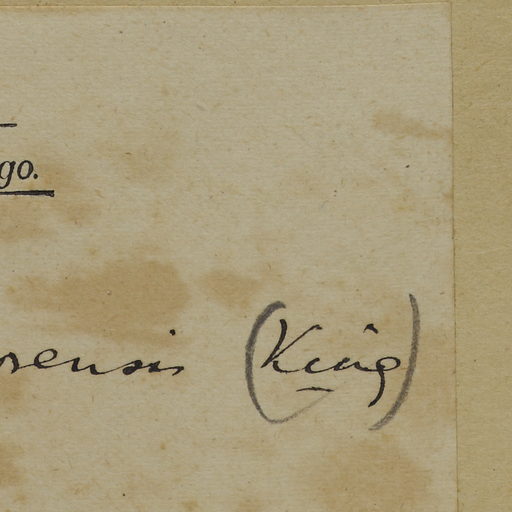 go.
rensis (King)